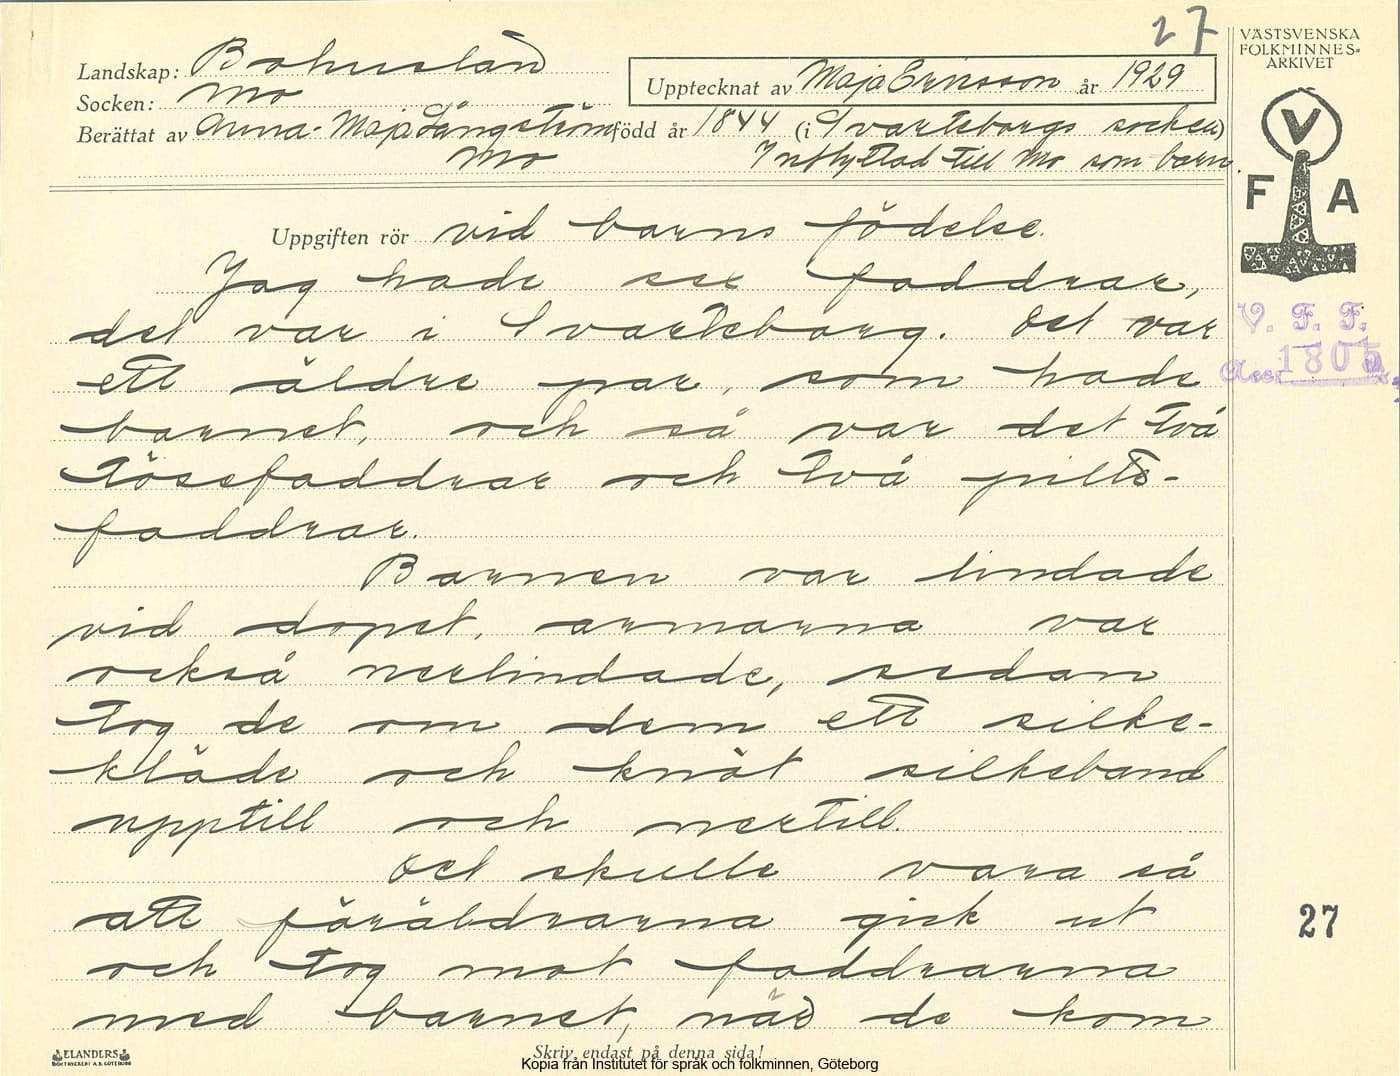 27
VÄSTSVENSKA
FOLKMINNES-
ARKIVET
Landskap: Bohuslän
Upptecknat av Maja Ericsson år 1929
Socken: Mo
Berättat av Anna-Maja Långström född år 1844 (i Svarteborgs socken)
Mo Inflyttad till Mo som barn.
V
F A
Uppgiften rör vid barns födelse.
Jag hade sex faddrar,
det var i Svarteborg. Det var
ett äldre par, som hade
barnet, och så var det två
tösefaddrar och två pilts-
faddrar.
Barnen var lindade
vid dopet, armarna var
också nerlindade, sedan
tog de om dem ett silke-
kläde och knöt silkeband
upptill och nertill.
Det skulle vara så
att föräldrarna gick ut
och tog mot faddrarna
med barnet, när de kom
V. F. F.
Acc. 1805
27
ELANDERS
BOKTRYCKERI A.B. GÖTEBORG
Skriv endast på denna sida!
Kopia från Institutet för språk och folkminnen, Göteborg